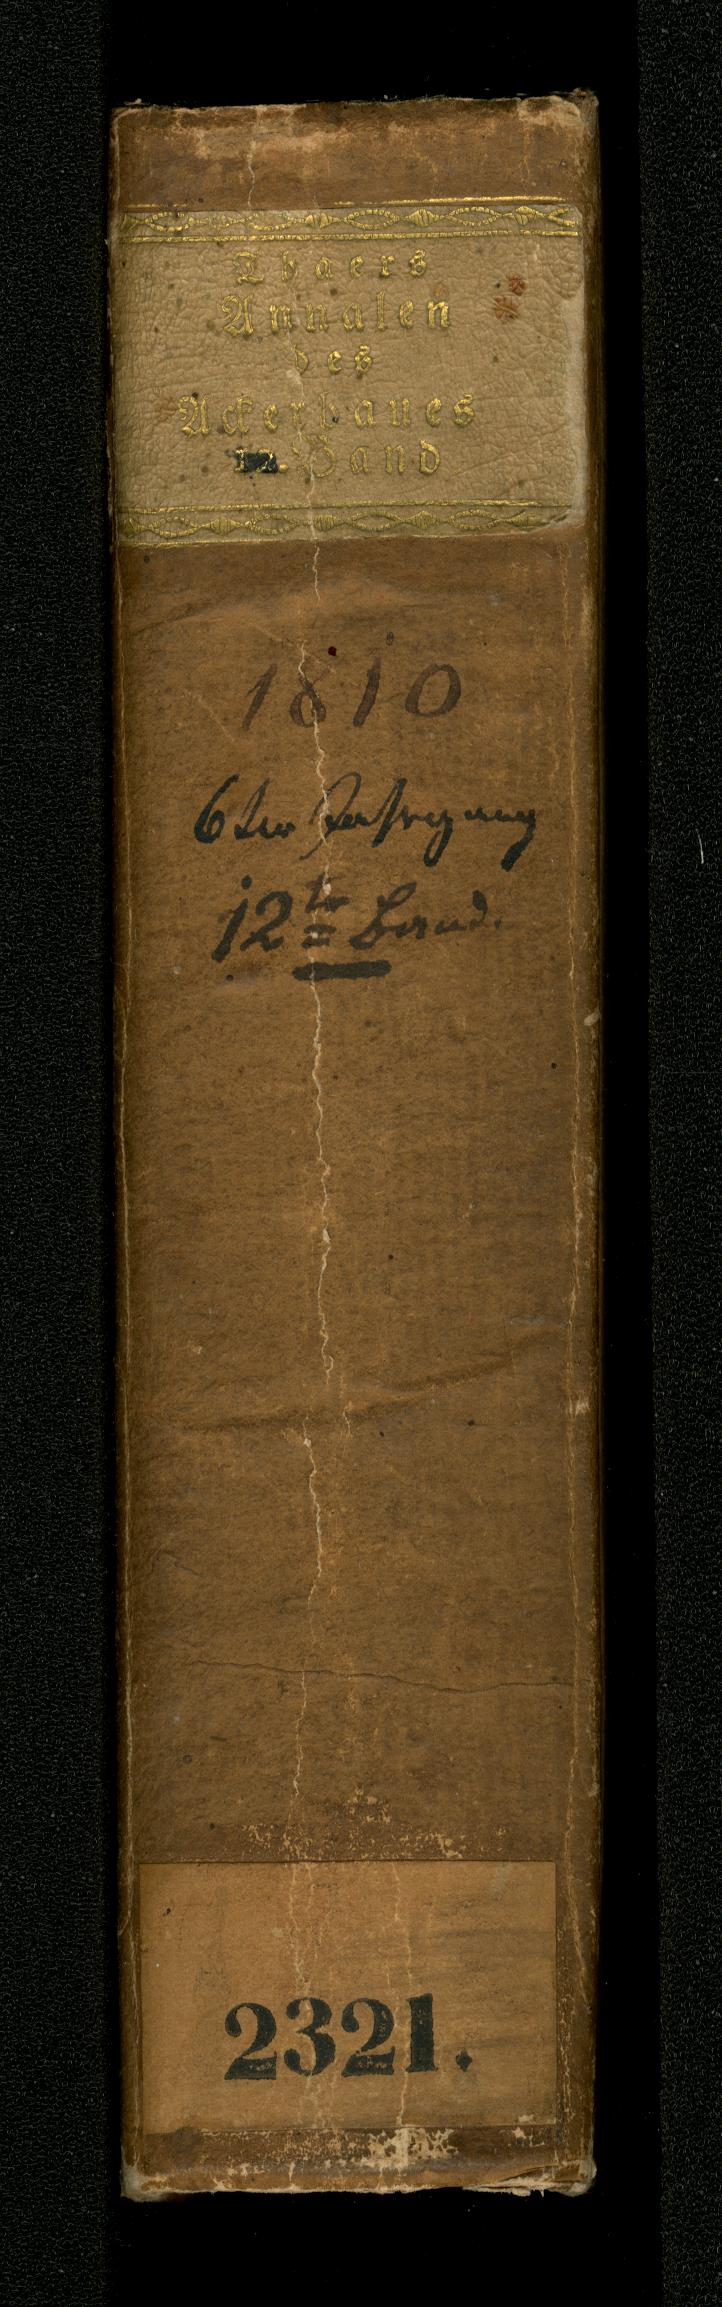 Thaers
Annalen
des
Ackerbaues
12. Band
1810
6ter Jahrgang
12ter Band.
2321.